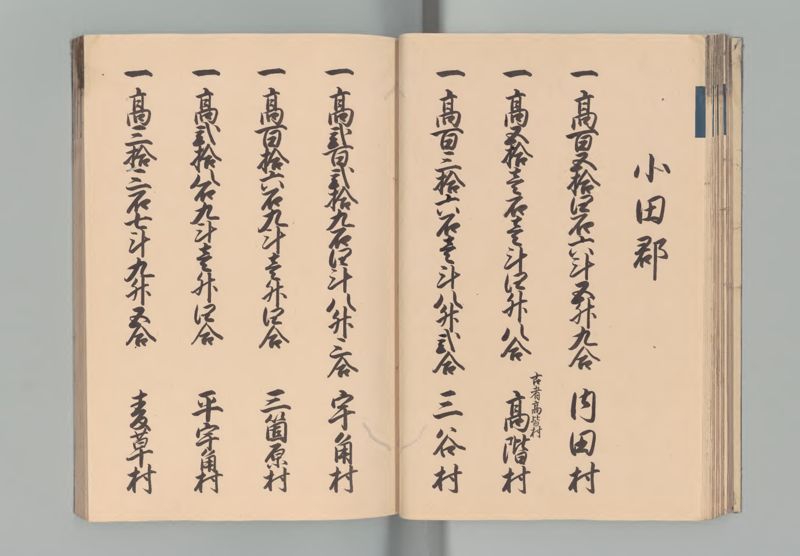 小田郡
一高百五拾四石六斗五升九合 内田村
一高五拾壱石壱斗四升八合 高階村
古者高皆村
一高百三拾六石壱斗八升弐合 三谷村
一高弐百弐拾九石四斗八升三合 宇角村
一高百拾六石九斗壱升四合 三箇原村
一高弐拾八石九斗壱升四合 平宇角村
一高三拾三石七斗九升五合 麦草村